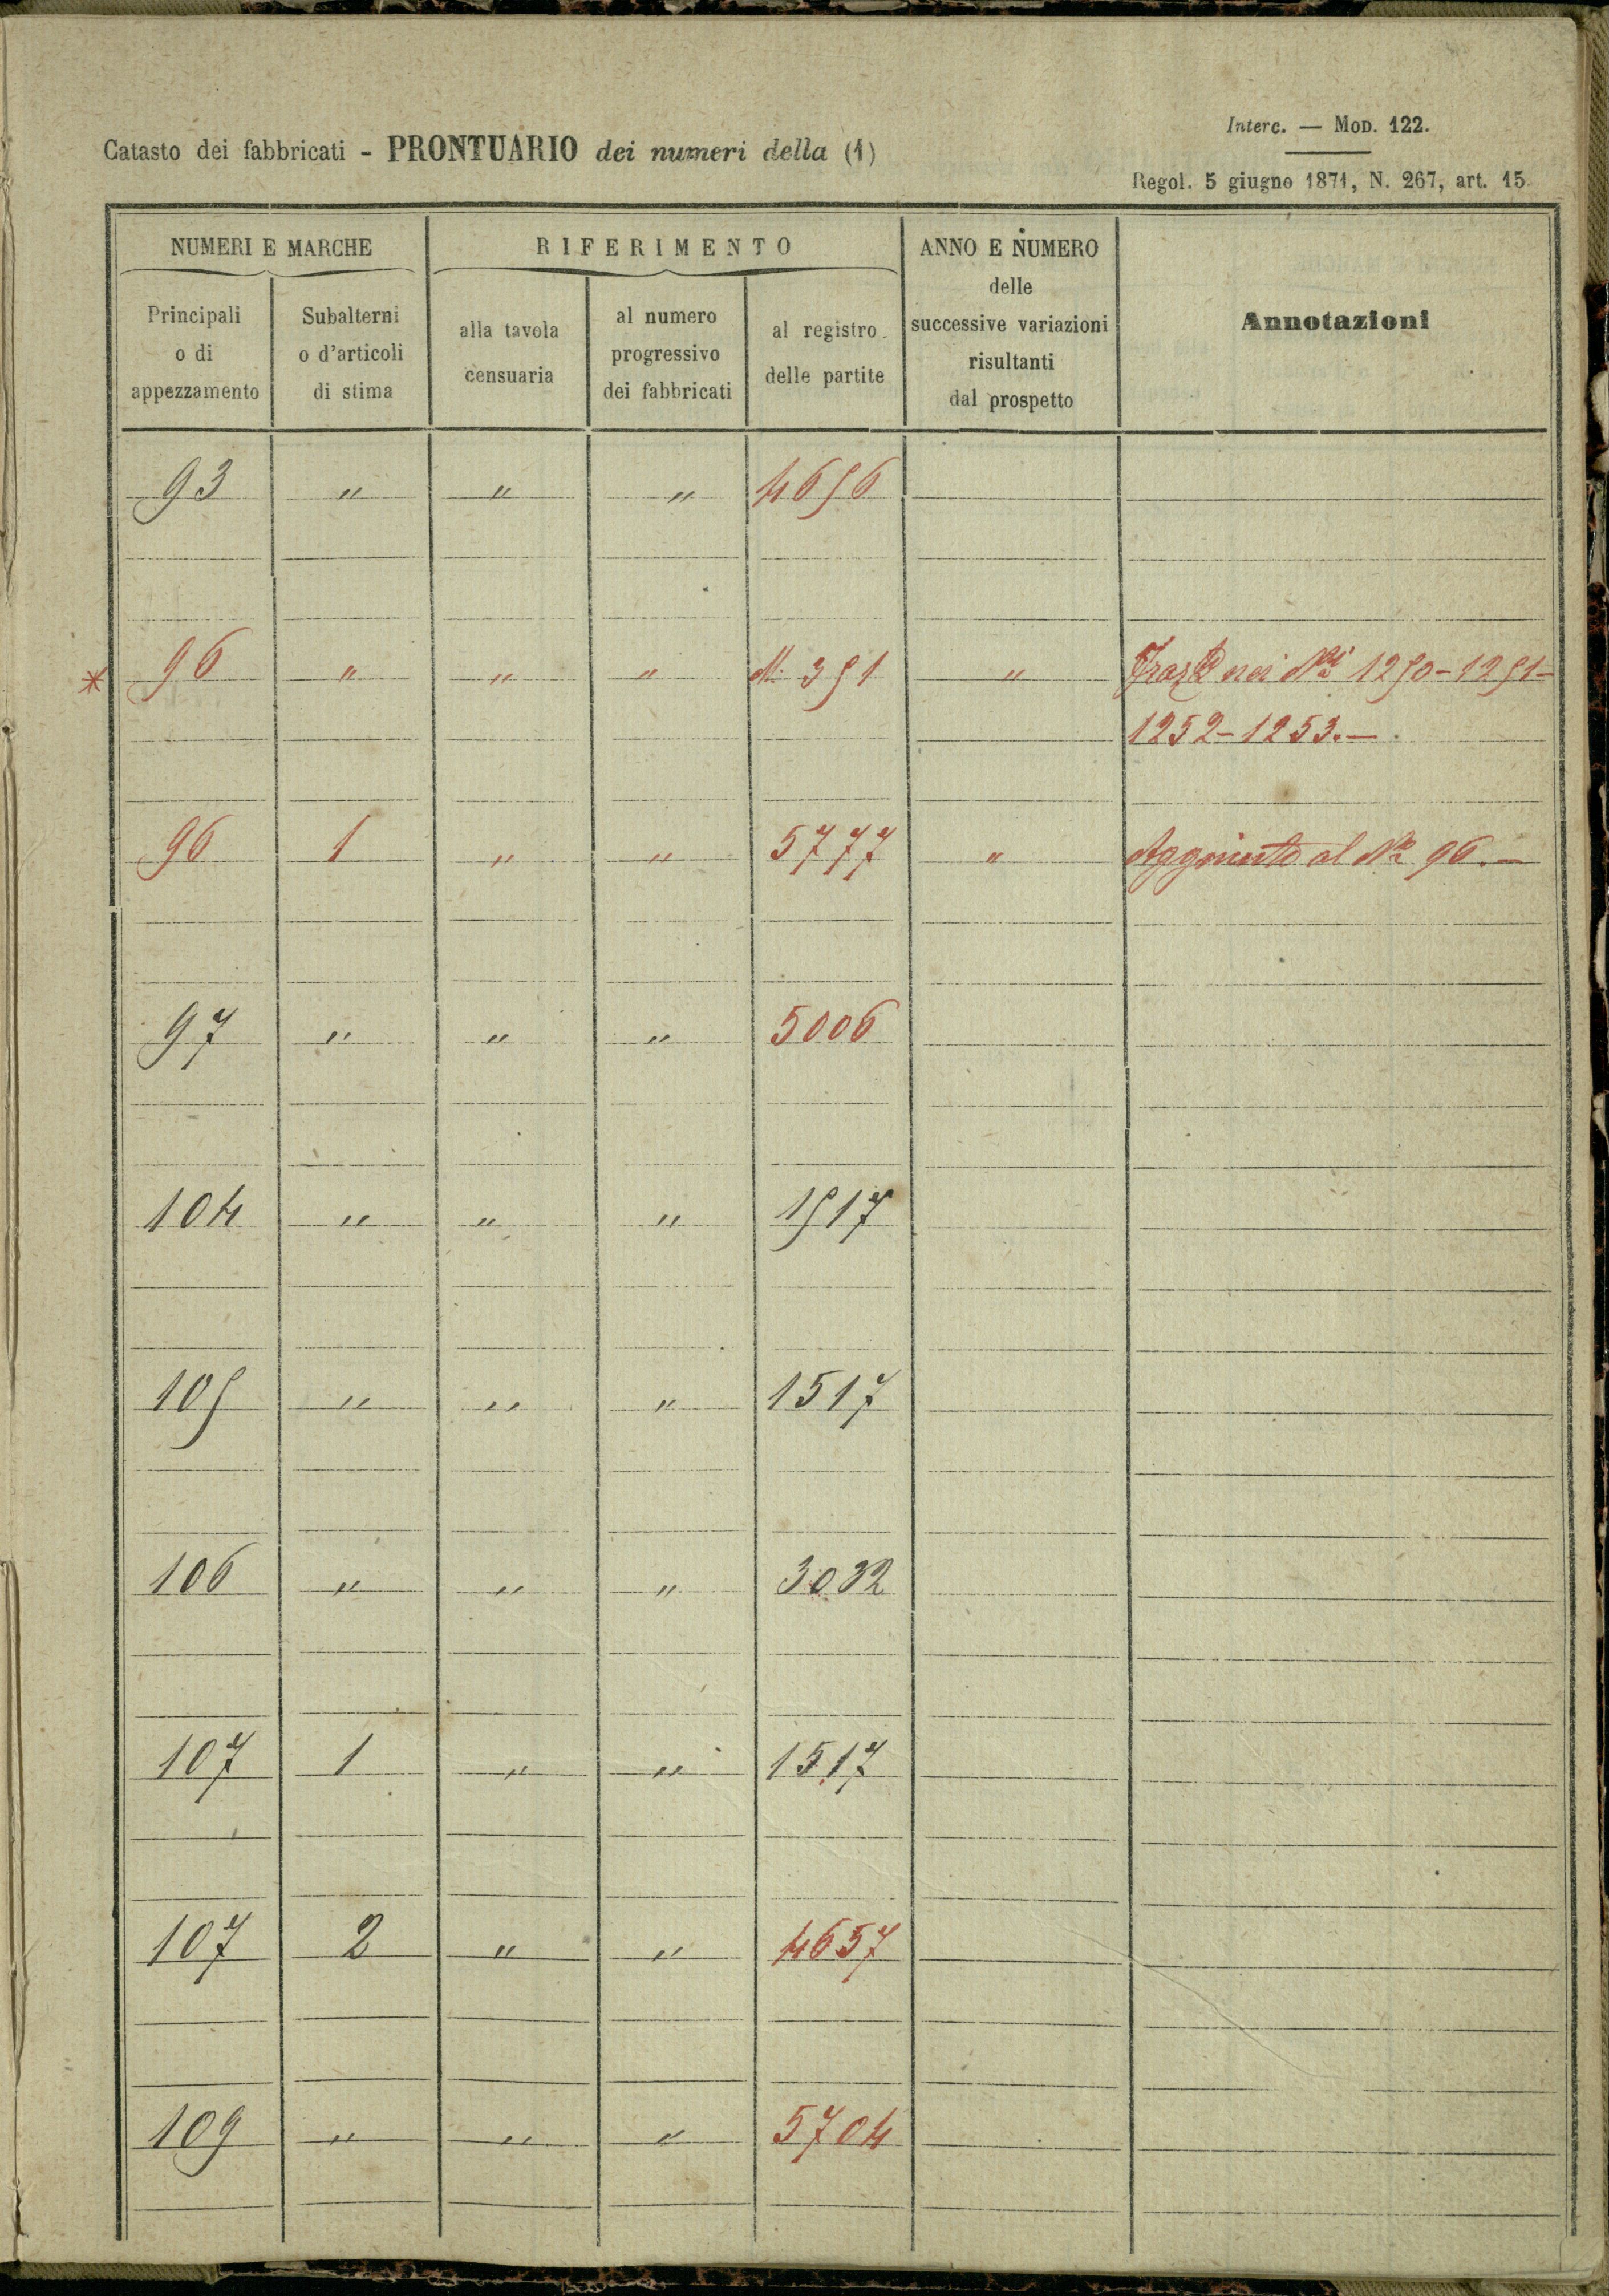 Interc. — Mod. 122.
Catasto dei fabbricati - PRONTUARIO dei numeri della (1)
Regol. 5 giugno 1871, N. 267, art. 15.
NUMERI E MARCHE
RIFERIMENTO
ANNO E NUMERO
delle
successive variazioni
risultanti
dal prospetto
Annotazioni
Principali
o di
appezzamento
Subalterni
o d'articoli
di stima
alla tavola
censuaria
al numero
progressivo
dei fabbricati
al registro
delle partite
93 " " " 4656
* 96 " " " M. 351 " nei Ni 1250-1251-
1252-1253.—
96 1 " " 5777 " Aggiunto al No 96.—
97 " " " 5006
104 " " " 1517
105 " " " 1517
106 " " " 3032
107 1 " " 1517
107 2 " " 4657
109 " " " 5704